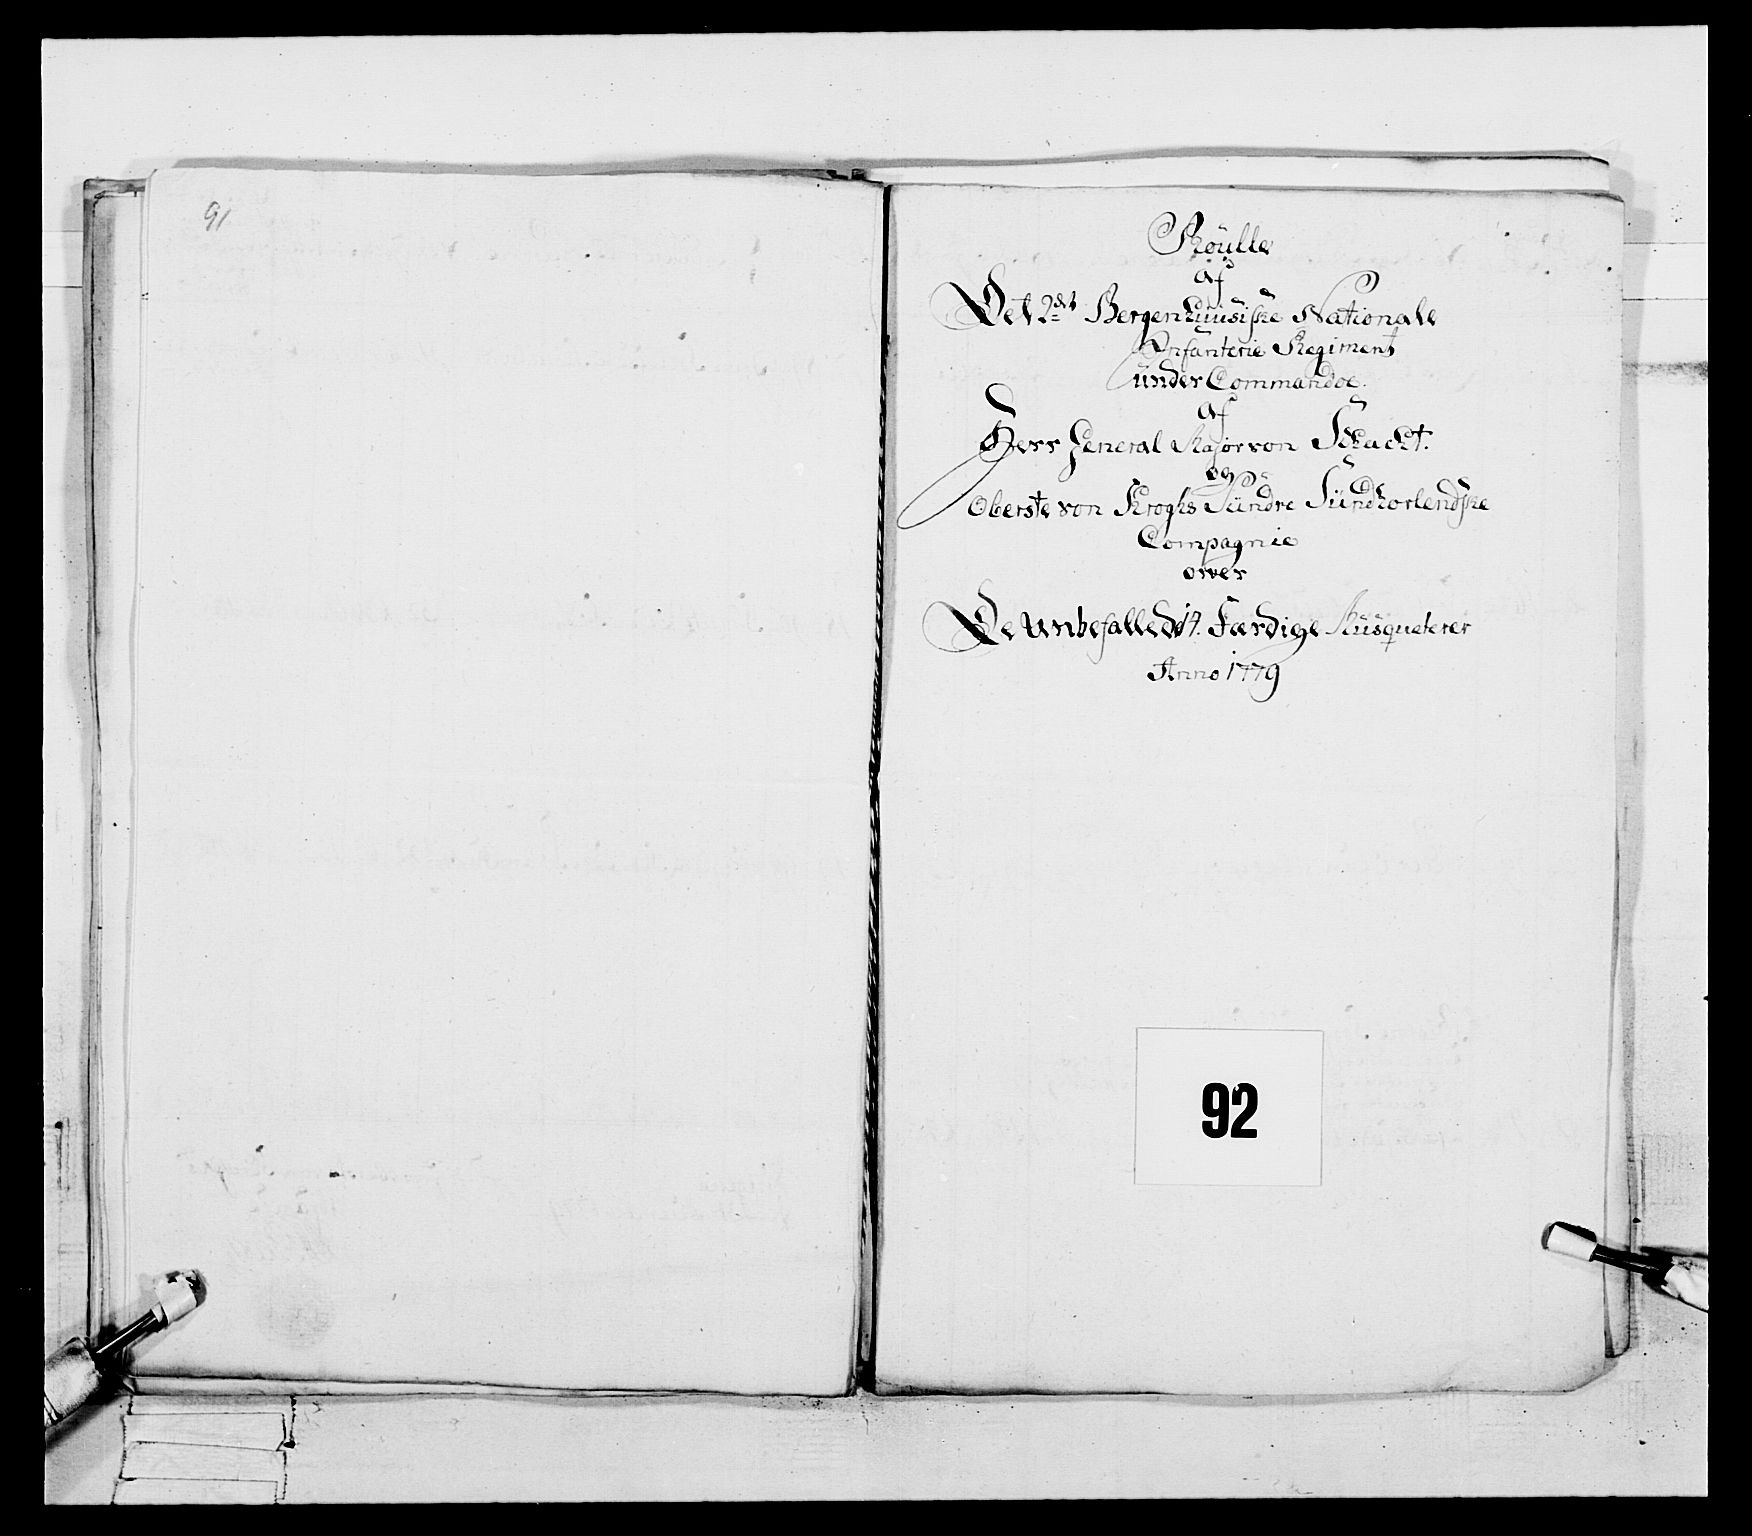 91
Roulle
af
Det 2det Bergenhuusiske Nationale
Infanterie Regiment
under Commandoe.
af
Herr General Major von Schacht.
og
Oberste von Kroghs Sündre Sündhorlendske
Compagnie
over
De Unbefallede Færdige Musqueterer
Anno 1779
92